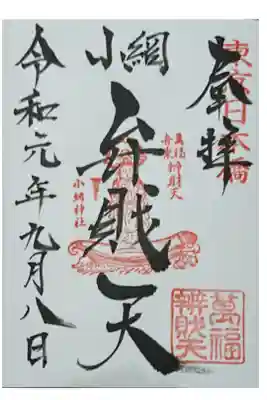 東京日本橋
奉拝
小網
弁財天
萬福辨財天
舟乗
小網神社
萬福
辨財天
令和元年九月八日